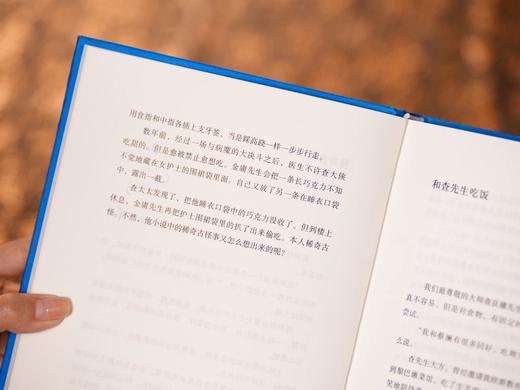 用食指和中指各插上支牙签，当是踩高跷一样一步步行走。
数年前，经过一场与病魔的大决斗之后，医生不许查大侠
吃甜的。但是愈被禁止愈想吃。金庸先生会把一条长巧克力不知
不觉地藏在女护士的围裙袋里面。自己又放了另一条在睡衣口袋
中，露出一截。
查太太发现了，把他睡衣口袋中的巧克力没收了。但到楼上
休息，金庸先生再把护士围裙袋里的扒了出来偷吃。本人稀奇古
怪。不然，他小说中的稀奇古怪事又怎么想出来的呢？
和查先生吃饭
我们最尊敬的大师查良镛先生
真不容易。但是对食物，有固定的
尝试。
“我和蔡澜有很多同好，吃
么说。
查先生大方，曾经邀请我
到黎巴嫩菜馆，吃了生羊